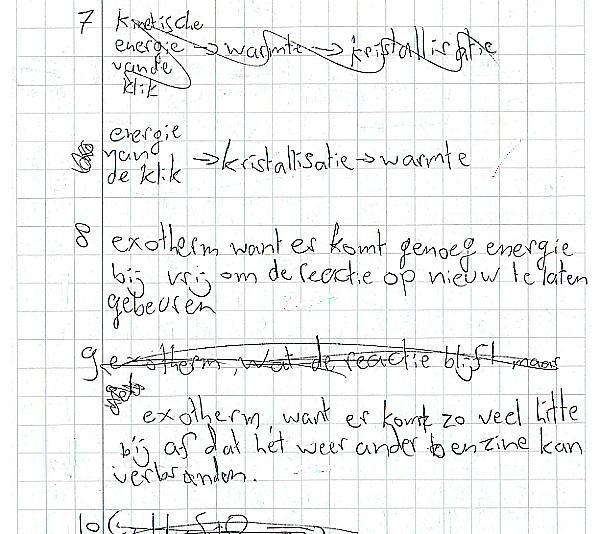 7 kinetische
energie → warmte → kristallisatie
vande
klik
energie
van → kristallisatie → warmte
de klik
8 exotherm want er komt genoeg energie
bij vrij om de reactie op nieuw te laten
gebeuren
9 exotherm, wat de reactie blijft maar
exotherm, want er komt zo veel hitte
bij af dat het weer ander benzine kan
verbranden.
10